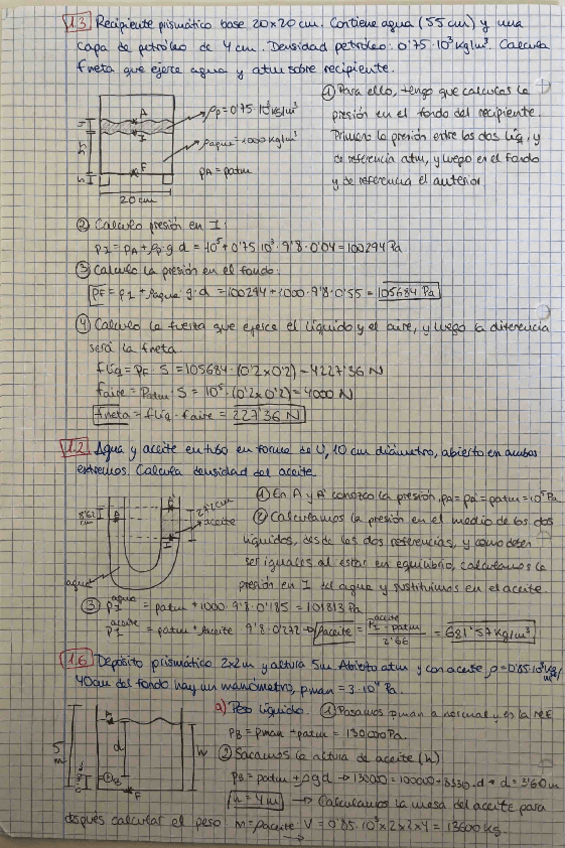 1.3 Recipiente prismático base 20x20 cm. Contiene agua (55 cm) y una
capa de petróleo de 4 cm. Densidad petróleo: 0'75·10³ kg/m³. Calcula
fneta que ejerce agua y atm sobre recipiente.
① Para ello, tengo que calcular la
presión en el fondo del recipiente.
Primero la presión entre los dos líq, y
de referencia atm, y luego en el fondo
y de referencia el anterior
A
I
F
ρp=0'75·10³ kg/m³
ρagua=1000 kg/m³
pA = patm
20 cm
② Calculo presión en I:
pI = pA + ρp·g·d = 10⁵ + 0'75·10³·9'8·0'04 = 100294 Pa
③ Calculo la presión en el fondo:
pF = pI + ρagua·g·d = 100294 + 1000·9'8·0'55 = 105684 Pa
④ Calculo la fuerza que ejerce el líquido y el aire, y luego la diferencia
será la fneta
flíq = pF·S = 105684·(0'2x0'2) = 4227'36 N
faire = Patm·S = 10⁵·(0'2x0'2) = 4000 N
fneta = flíq - faire = 227'36 N
1.2 Agua y aceite en tubo en forma de U, 10 cm diámetro, abierto en ambos
extremos. Calcula densidad del aceite.
① En A y A' conozco la presión, pA = pA' = patm = 10⁵ Pa
② Calculamos la presión en el medio de los dos
líquidos, desde las dos referencias, y como deben
ser iguales al estar en equilibrio, calculamos la
presión en I del agua y sustituimos en el aceite.
aceite
agua
③ pI agua = patm + 1000·9'8·0'185 = 101813 Pa
pI aceite = patm + ρaceite·9'8·0'272 → ρaceite = pI aceite - patm / 2'66 = 681'57 kg/m³
1.6 Depósito prismático 2x2 m y altura 5m. Abierto atm y con aceite ρ=0'85·10³ kg/m³
40cm del fondo hay un manómetro, pman = 3·10⁴ Pa.
a) Peso líquido. ① Pasamos pman a normal y es la ref
pB = pman + patm = 130000 Pa.
② Sacamos la altura de aceite (h)
pB = patm + ρgd → 130000 = 100000 + 8330·d → d = 3'60 m
h = 4m → Calculamos la masa del aceite para
5 m
d
h
A
B
F
después calcular el peso: m = ρaceite·V = 0'85·10³·2x2x4 = 13600 kg.